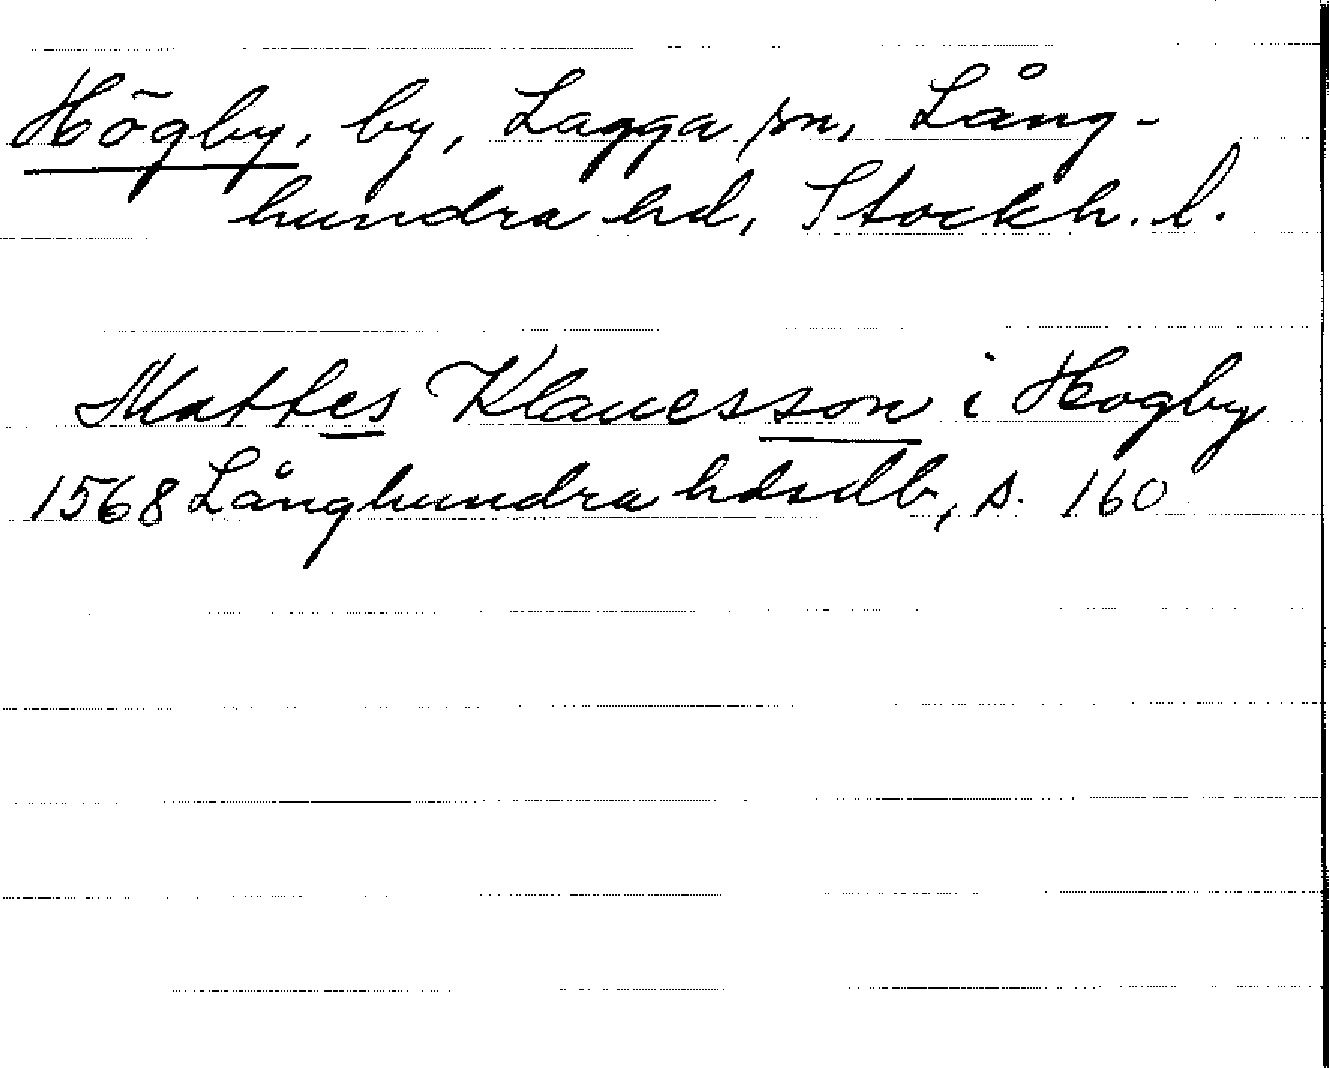 Högby, by, Lagga sn, Lång-
hundra hd, Stockh. l.
Mattes Klauesson i Hogby
1568 Långhundra hdsdb, s. 160